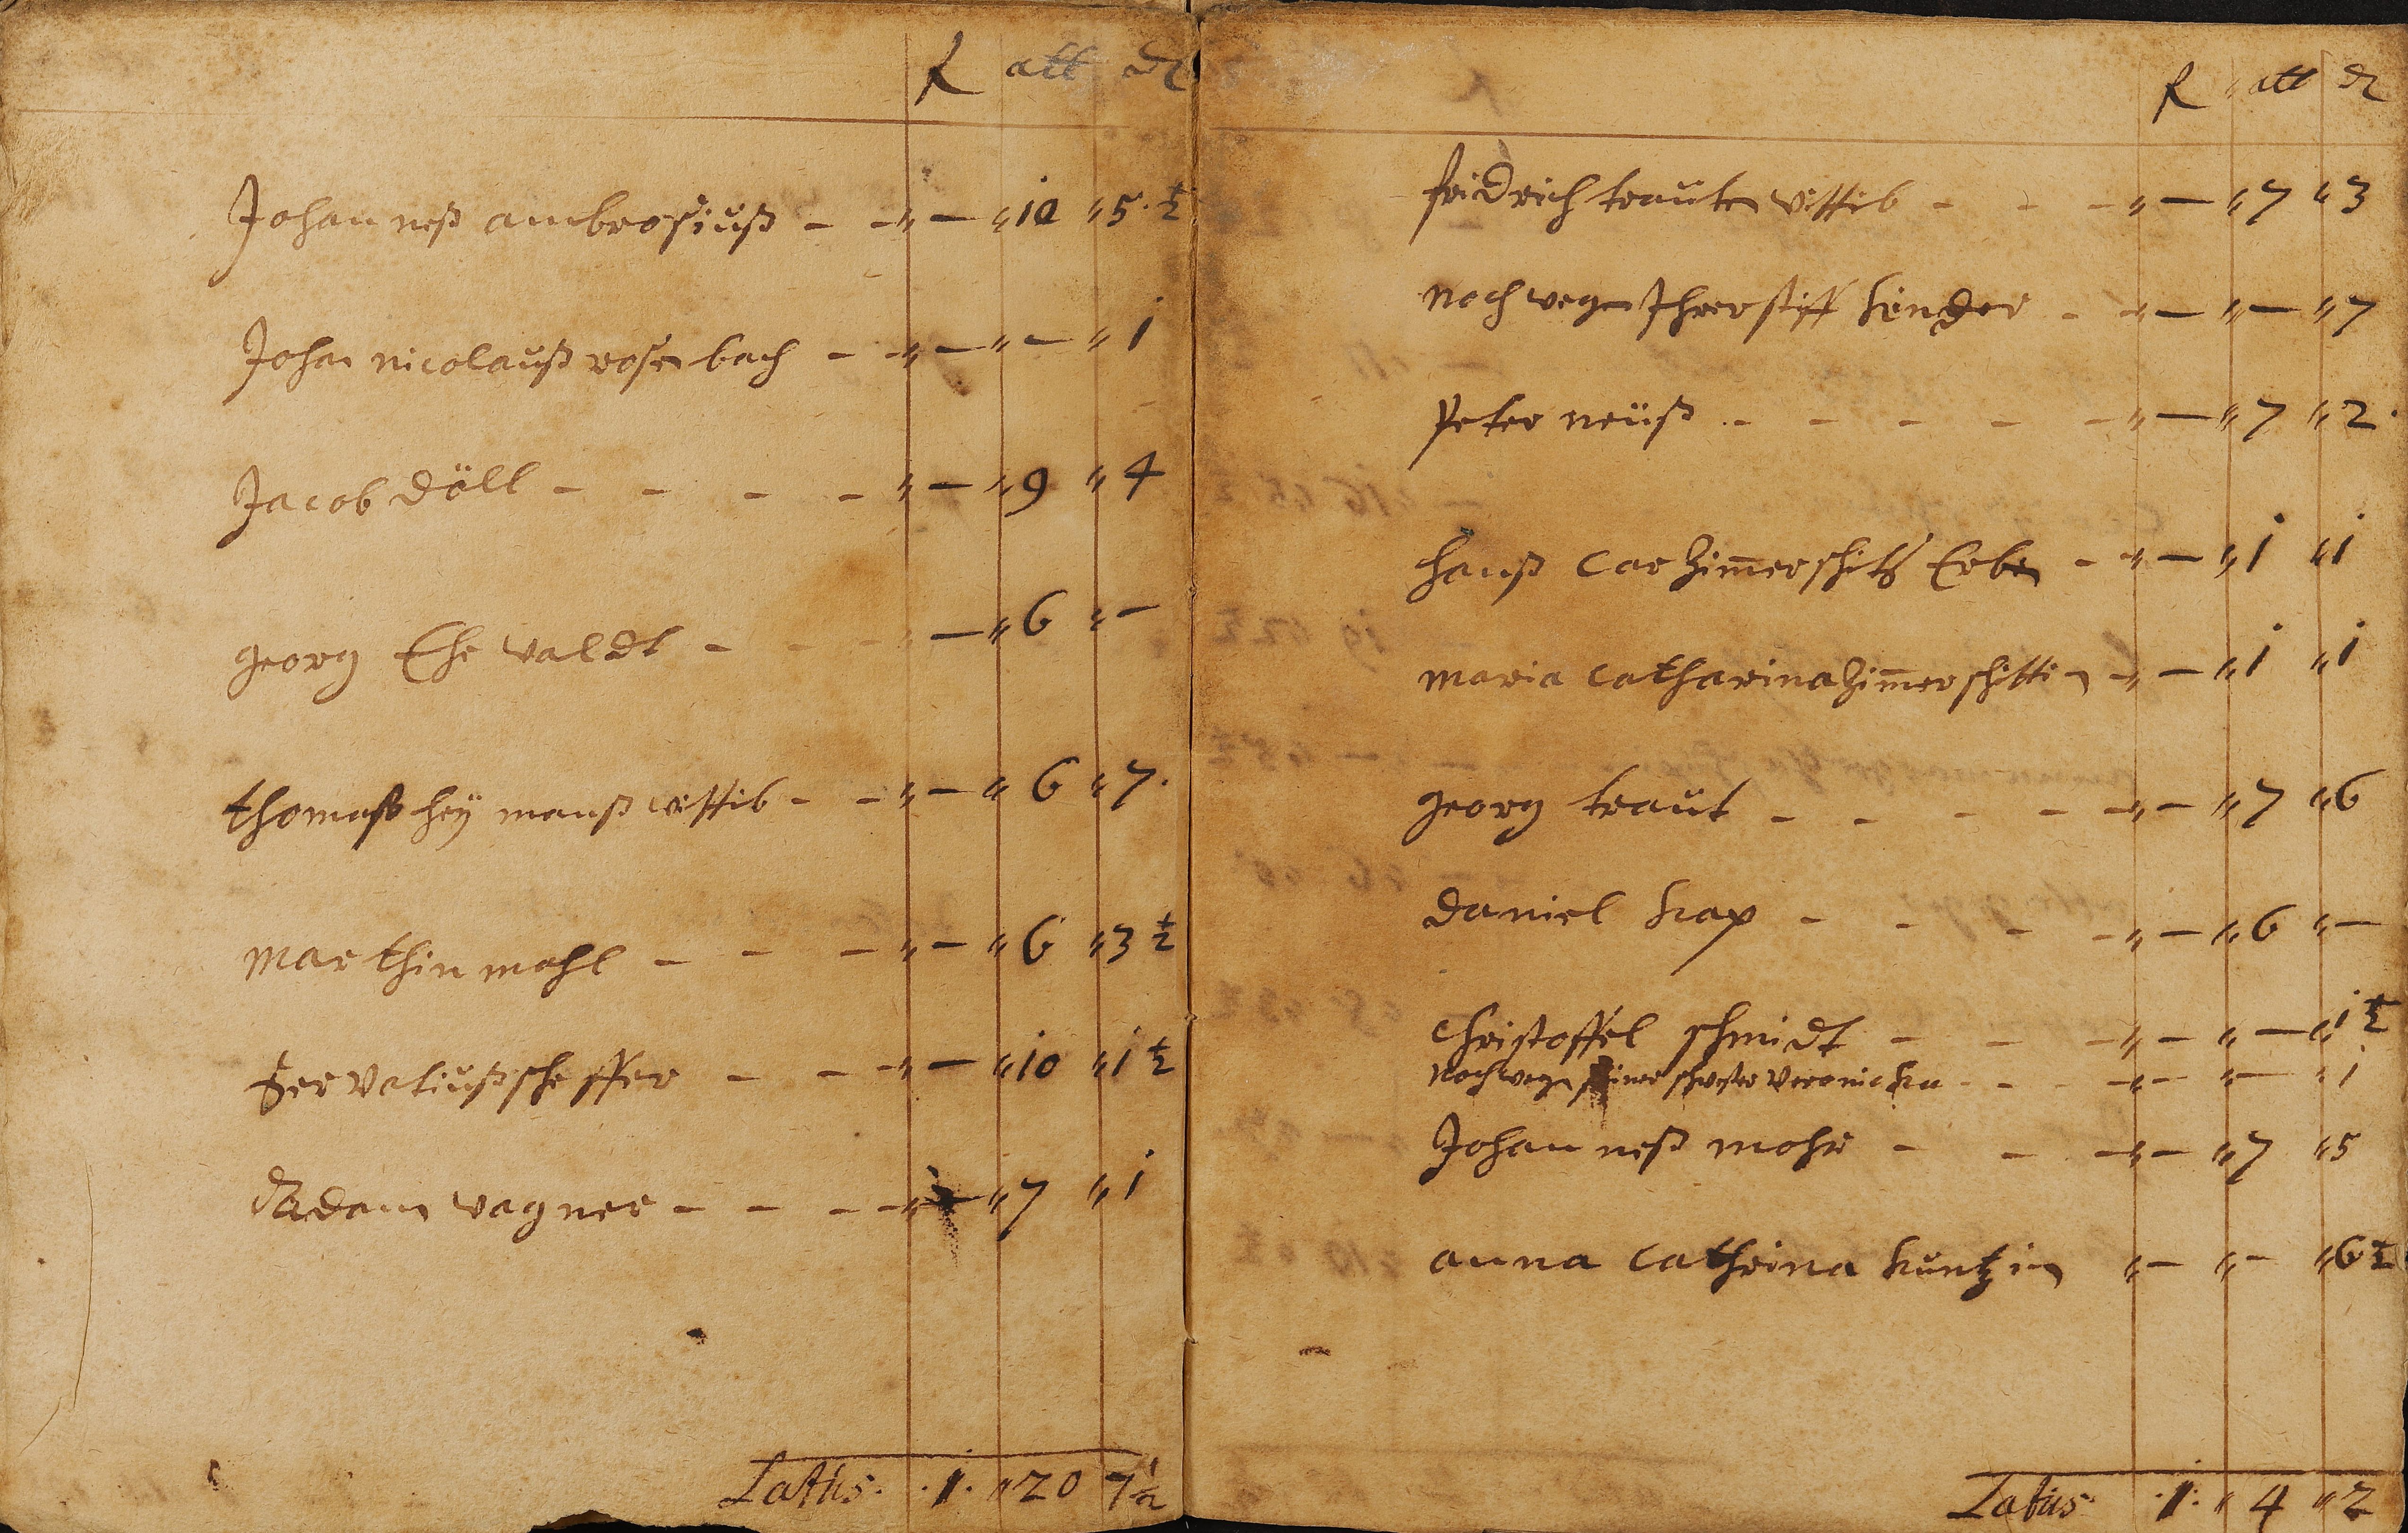 f att d
Johanneß ambrosiuß - - " - " 10 " 5 ½
Johan nicolauß rosenbach - - " - " - " 1
Jacob döll - - - - " - " 9 " 4
georg Ehewaldt - - - - " 6 " -
thomaß heÿmanß wittib - - " - " 6 " 7.
Marthin mohl - - - " - " 6 " 3 ½
Servatiuß scheffer - - - " - " 10 " 1 ½
Adam wagner - - - - " - " 7 " 1
Latus. . 1 . " 20 7 ½
f " att d
fridrich trauten wittib - - - " - " 7 " 3
noch wegen Ihrer stiff kinder - - " - " - " 7
Peter neüß - - - - - " - " 7 " 2.
hanß Car Zim̅erschits Erben - - " - " 1 " 1
maria catharina Zim̅erschittin - " - " 1 " 1
georg traut - - - - - " - " 7 " 6
daniel kap - - - - " - " 6 " -
Christoffel schmidt - - - " - " - " 1 ½
noch wegen seiner schwester Veronicka - - - " - " - " 1
Johanneß mohr - - - " - " 7 " 5
anna Cathrina kuntzin " - " - " 6 ½
Latus . 1 . " 4 " 2